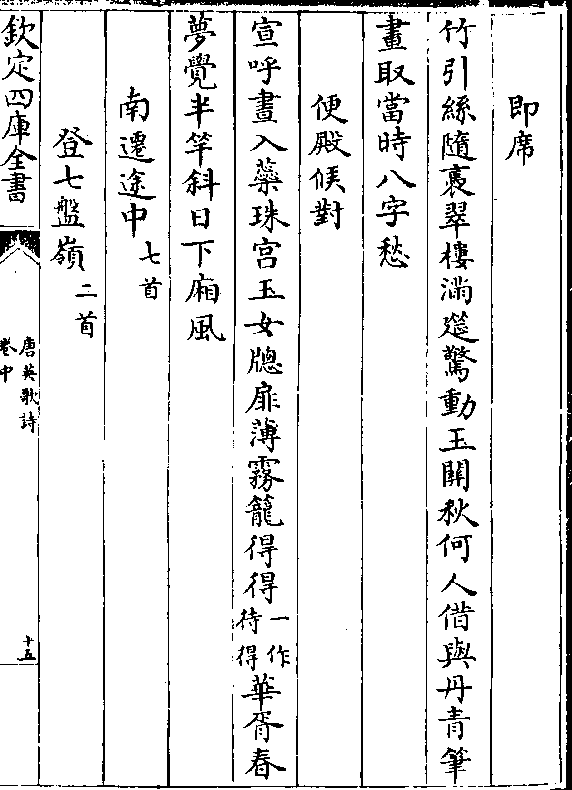 即席
竹引絲隨裛翠樓滿筵驚動玉關秋何人借與丹青筆
畫取當時八字愁
便殿候對
宣呼晝入蘂珠宫玉女牎扉薄霧籠得得一作待得華胥春
夢覺半竿斜日下廂風
南遷途中七首
登七盤嶺二首
欽定四庫全書
唐英歌詩
卷中
十五